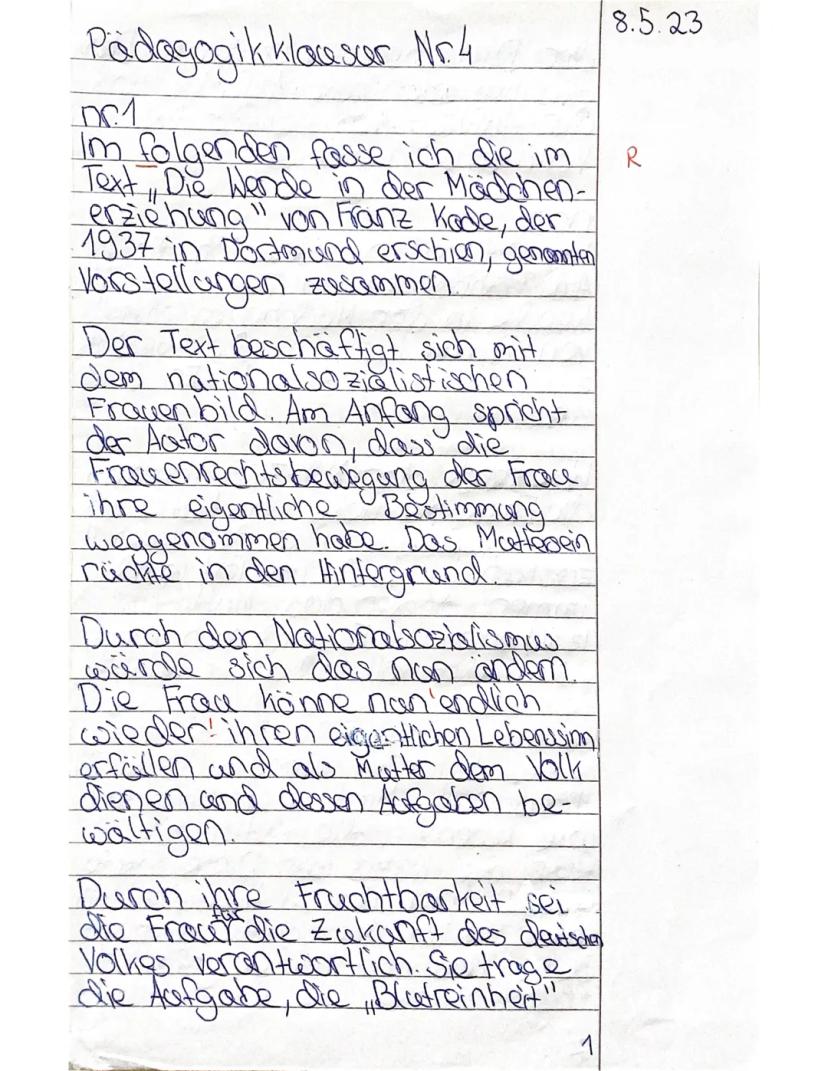 8.5.23
Pädagogikklausur Nr. 4
nr. 1
Im folgenden fasse ich die im
R
Text „Die Wende in der Mädchen-
erziehung" von Franz Kade, der
1937 in Dortmund erschien, genannten
Vorstellungen zusammen.
Der Text beschäftigt sich mit
dem nationalsozialistischen
Frauenbild. Am Anfang spricht
der Autor davon, dass die
Frauenrechtsbewegung der Frau
ihre eigentliche Bestimmung
weggenommen habe. Das Muttersein
rückte in den Hintergrund.
Durch den Nationalsozialismus
würde sich das nun ändern.
Die Frau könne nun 'endlich
wieder' ihren eigentlichen Lebenssinn
erfüllen und als Mutter dem Volk
dienen und dessen Aufgaben be-
wältigen.
Durch ihre Fruchtbarkeit sei
die Frau für die Zukunft des deutschen
Volkes verantwortlich. Sie trage
die Aufgabe, die „Blutreinheit"
1